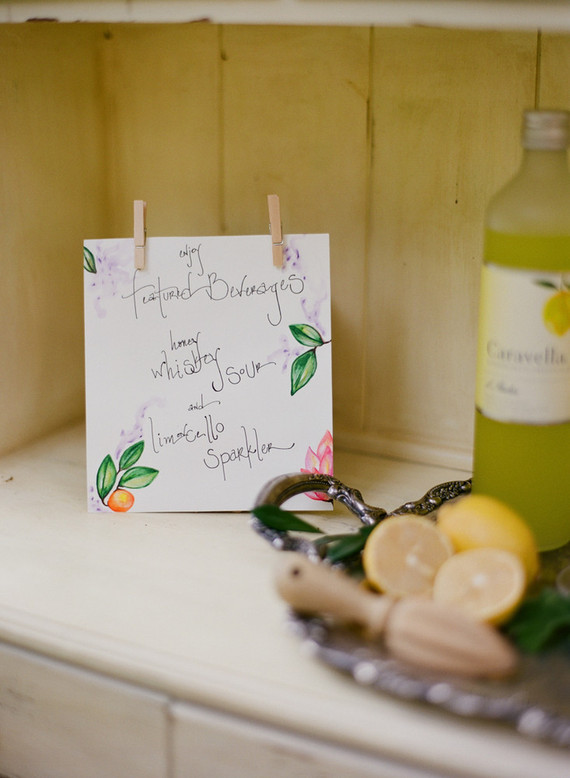 enjoy
Featured Beverages
honey
whiskey sour
and
limoncello
sparkler
Caravella